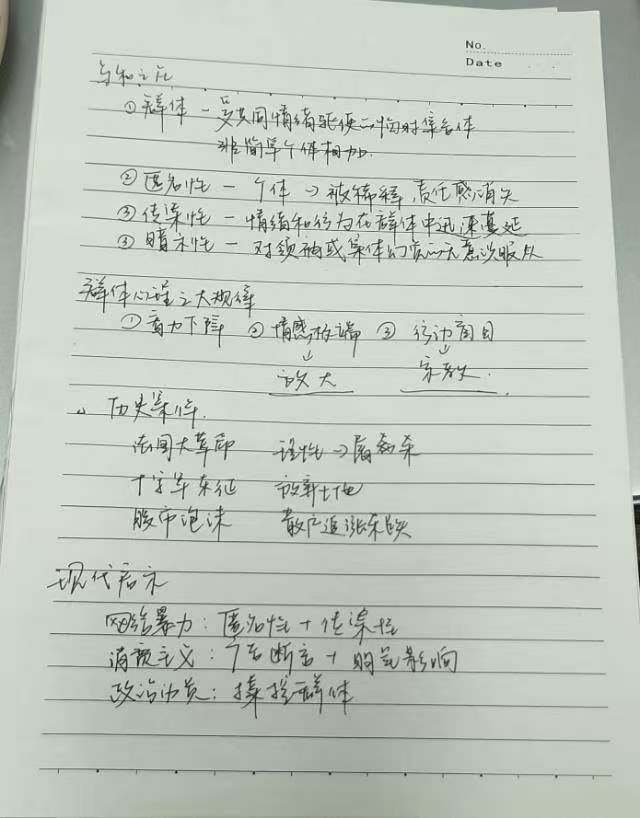 No.
Date
乌和之众
①群体 — 受共同情绪驱使的临时集合体
非简单个体相加.
②匿名性 — 个体→被稀释,责任感消失
③传染性 — 情绪和行为在群体中迅速蔓延
③暗示性 — 对领袖或集体幻觉的无意识服从
群体心理三大规律
①智力下降 ②情感极端 ③行动盲目
↓ ↓
放大 宗教.
历史案件.
法国大革命 理性→屠杀
十字军东征 放弃土地
股市泡沫 散户追涨杀跌
现代启示
网络暴力:匿名性+传染性
消费主义: 断言+ 影响
政治动员:操控群体